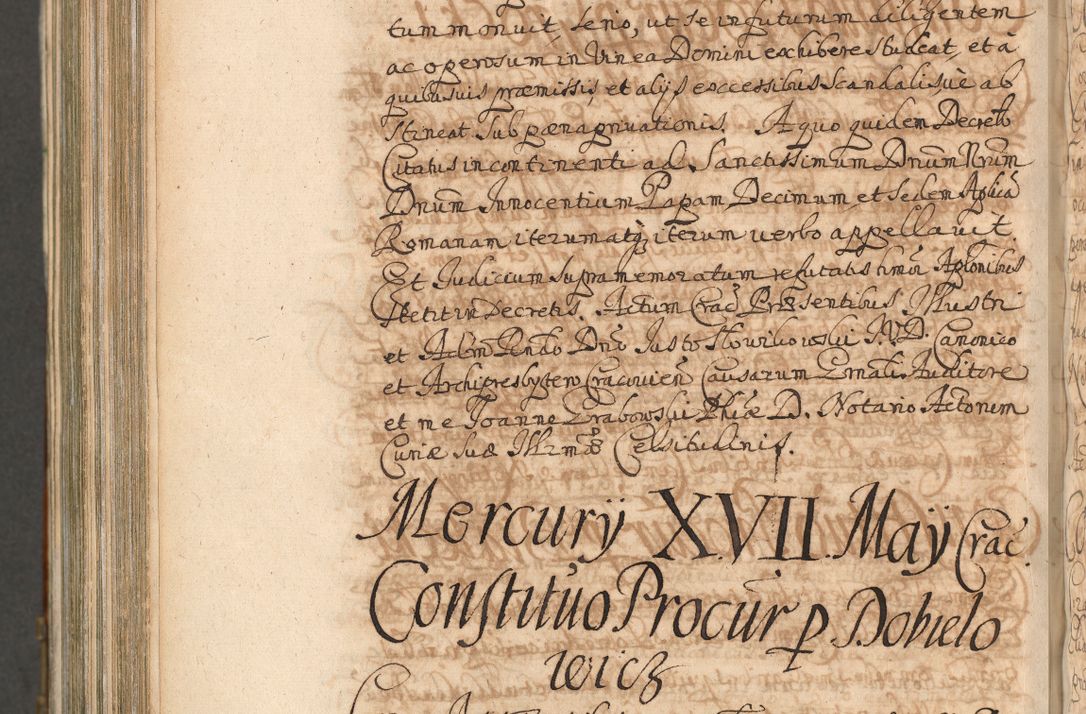 tum monuit, serio, ut se in futurum diligentem
ac operosum in Vinea Domini exhibere studeat, et à
quibusuis præmissis, et alijs excessibus scandalisuè ab
stineat sub pæna priuationis. A quo quidem Decreto
Citatus incontinenti ad Sanctissimum Dnum Nrum
Dnum Innocentium Papam Decimum, et Sedem Aplicã
Romanam iterum atq iterum uerbo appellauit.
Et Judicium supramemoratum refutatis
stetit in Decretis. Actum Crac Præsentibus Illustri
et Adm Rndo Dno Justo Słowikowski J.V.D. Canonico
et Archipresbytero Cracouien Causarum Grnali Auditore
et me Joanne Grabowski Phiæ D. Notario Actorum
Curiæ suæ Illrmæ Celsitudinis.
Mercurÿ XVII. Maÿ Crac.
Constitũo Procũr p Dobielo
wicz